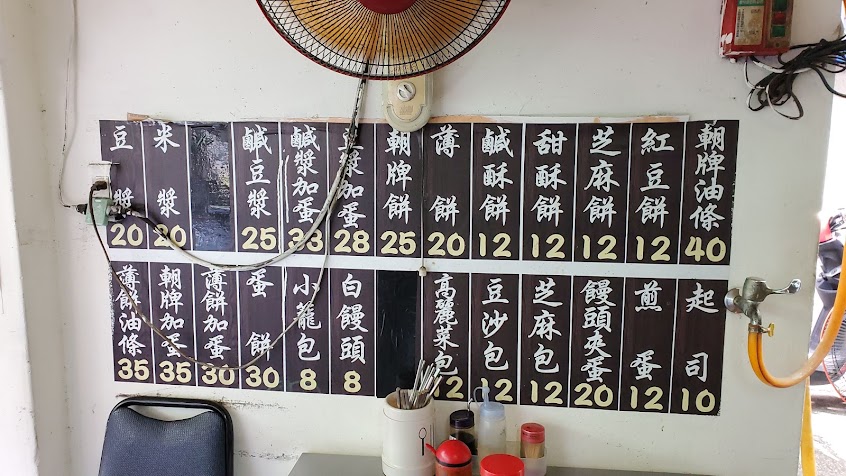 朝牌油條 40
紅豆餅 12
芝麻餅 12
甜酥餅 12
鹹酥餅 12
薄餅 20
朝牌餅 25
豆漿加蛋 28
鹹漿加蛋 33
鹹豆漿 25
米漿 20
豆漿 20
起司 10
煎蛋 12
饅頭夾蛋 20
芝麻包 12
豆沙包 12
高麗菜包 12
白饅頭 8
小籠包 8
蛋餅 30
薄餅加蛋 30
朝牌加蛋 35
薄餅油條 35